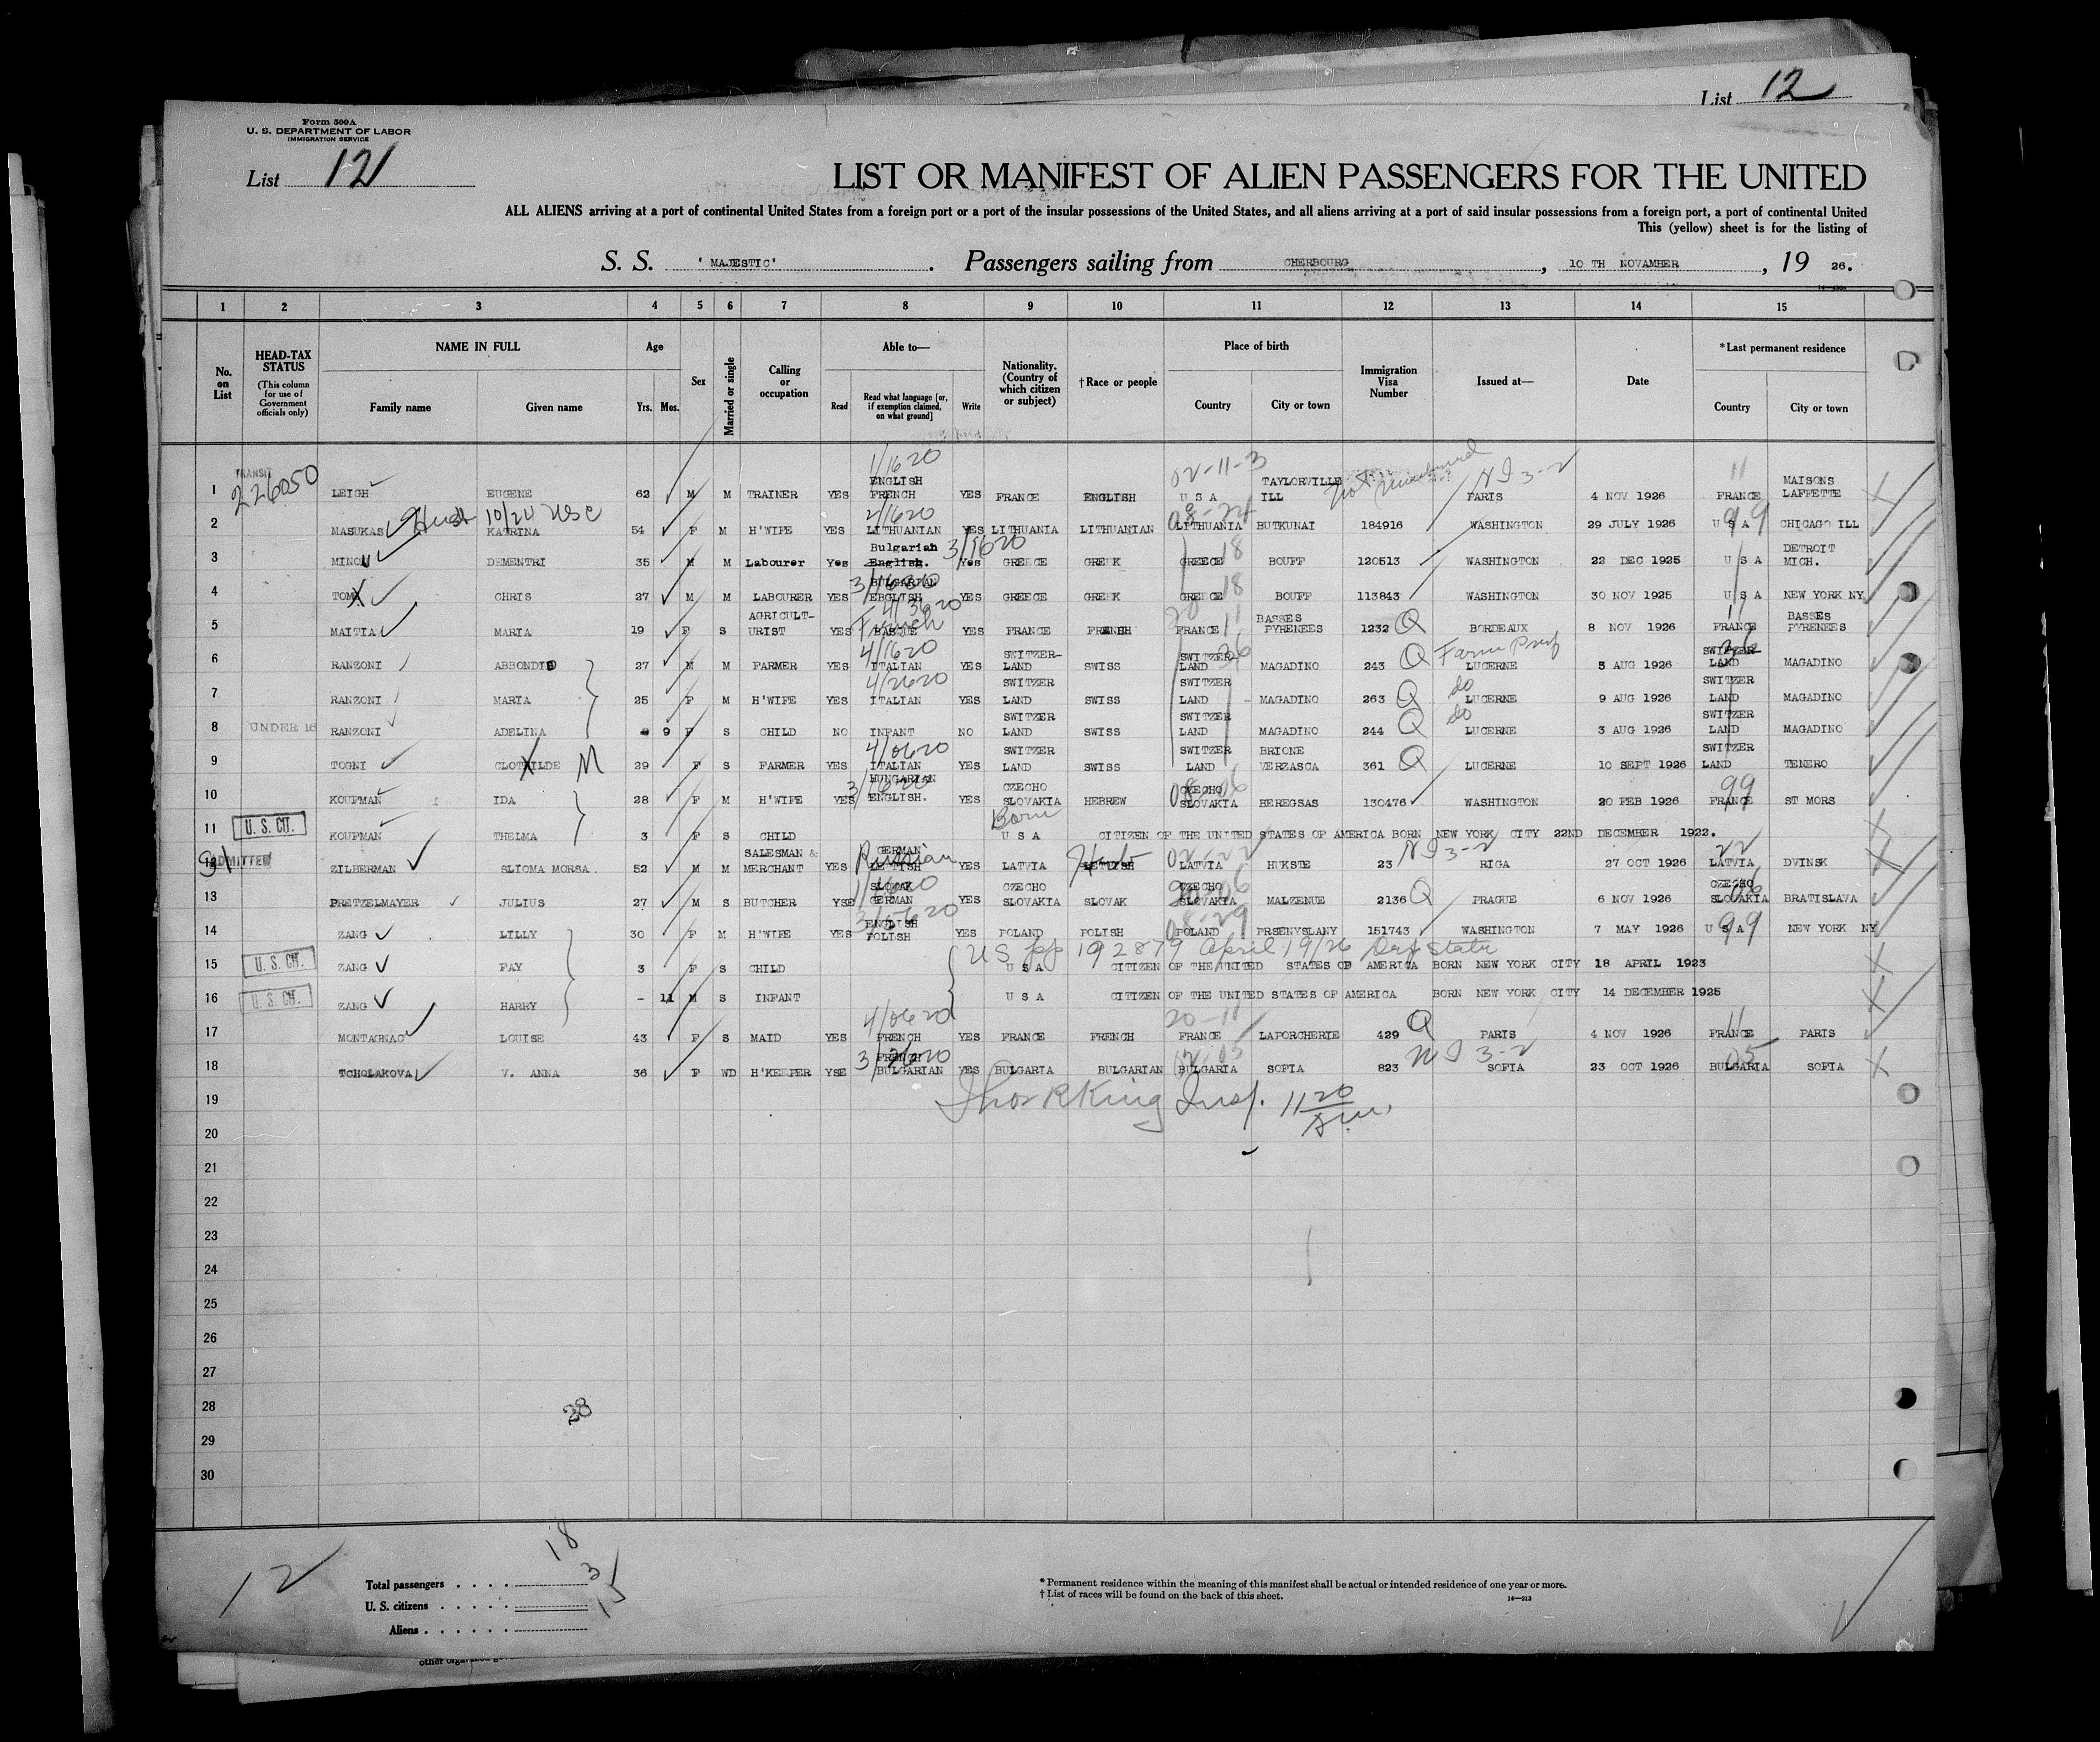 List 12
Form 500A
U. S. DEPARTMENT OF LABOR
IMMIGRATION SERVICE
List 12
LIST OR MANIFEST OF ALIEN PASSENGERS FOR THE UNITED
ALL ALIENS arriving at a port of continental United States from a foreign port or a port of the insular possessions of the United States, and all aliens arriving at a port of said insular possessions from a foreign port, a port of continental United
This (yellow) sheet is for the listing of
S. S. 'MAJESTIC'. Passengers sailing from CHERBOURG, 10 TH NOVAMBER, 19 26.
1 2 3 4 5 6 7 8 9 10 11 12 13 14 15
No. on List
HEAD-TAX STATUS (This column for use of Government officials only)
NAME IN FULL Family name Given name
Age Yrs. Mos.
Sex
Married or single
Calling or occupation
Able to— Read Read what language [or, if exemption claimed, on what ground] Write
Nationality. (Country of which citizen or subject)
†Race or people
Place of birth Country City or town
Immigration Visa Number
Issued at—
Date
*Last permanent residence Country City or town
1 TRANSIT 226050 LEIGH EUGENE 62 M M TRAINER YES 1/1620 ENGLISH FRENCH YES FRANCE ENGLISH 02-11-3 U S A TAYLORVILLE ILL not numbered NI 3-2 PARIS 4 NOV 1926 11 FRANCE MAISONS LAFFETTE
2 MASUKAS Husb 10/20 USC KATRINA 54 F M H'WIFE YES 2/1620 LITHUANIAN YES LITHUANIA LITHUANIAN LITHUANIA BUTKUNAI 184916 WASHINGTON 29 JULY 1926 99 U S A CHICAGO ILL
3 MINOU DEMENTRI 35 M M Labourer Yes Bulgarian English. 3/1620 Yes GREECE GREEK GREECE 18 BOUFF 120513 WASHINGTON 22 DEC 1925 U S A DETROIT MICH.
4 CHRIS 27 M M LABOURER YES YES GREECE GREEK GREECE 18 BOUFF 113843 WASHINGTON 30 NOV 1925 U S A NEW YORK NY
5 MAITIA MARIA 19 F S AGRICULT-URIST YES 4/3620 French BASQUE YES FRANCE FRENCH 20 11 FRANCE BASSES PYRENEES 1232 Q BORDEAUX 8 NOV 1926 11 FRANCE BASSES PYRENEES
6 RANZONI ABBONDIO 27 M M FARMER YES 4/1620 ITALIAN YES SWITZER-LAND SWISS SWITZER-LAND 36 MAGADINO 243 Q Farm Pref LUCERNE 3 AUG 1926 SWITZER-LAND MAGADINO
7 RANZONI MARIA 25 F M H'WIFE YES 4/2620 ITALIAN YES SWITZER LAND SWISS SWITZER LAND MAGADINO 263 Q do LUCERNE 9 AUG 1926 SWITZER LAND MAGADINO
8 UNDER 16 RANZONI ADELINA 9 F S CHILD NO INFANT NO SWITZER LAND SWISS SWITZER LAND MAGADINO 244 Q do LUCERNE 3 AUG 1926 SWITZER LAND MAGADINO
9 TOGNI CLOTHILDE M 29 F S FARMER YES 4/0620 ITALIAN YES SWITZER LAND SWISS SWITZER LAND BRIONE VERZASCA 361 Q LUCERNE 10 SEPT 1926 SWITZER LAND TENERO
10 KOUFMAN IDA 28 F M H'WIFE YES HUNGARIAN 3/1620 ENGLISH. YES CZECHO SLOVAKIA HEBREW 08-06 CZECHO SLOVAKIA BEREGSAS 130476 WASHINGTON 20 FEB 1926 99 FRANCE ST MORS
11 U. S. CIT. KOUFMAN THELMA 3 F S CHILD Born U S A CITIZEN OF THE UNITED STATES OF AMERICA BORN NEW YORK CITY 22ND DECEMBER 1922.
12 ADMITTED ZILBERMAN SLIOMA MORSA. 52 M M SALESMAN & MERCHANT YES GERMAN Russian LETTISH YES LATVIA Heb LETTISH 02-22 LATVIA HUKSTE 23 NI 3-2 RIGA 27 OCT 1926 22 LATVIA DVINSK
13 PRETZELMAYER JULIUS 27 M S BUTCHER YSE SLOVAK 1/1620 GERMAN YES CZECHO SLOVAKIA SLOVAK CZECHO SLOVAKIA MALZENUE 2136 Q PRAGUE 6 NOV 1926 CZECHO 06 SLOVAKIA BRATISLAVA
14 ZANG LILLY 30 F M H'WIFE YES 3/0620 ENGLISH POLISH YES POLAND POLISH 08-29 POLAND PRSENYSLANY 151743 WASHINGTON 7 MAY 1926 99 U S A NEW YORK NY
US pp 192879 April 19/26 Dep State
15 U. S. CIT. ZANG FAY 3 F S CHILD U S A CITIZEN OF THE UNITED STATES OF AMERICA BORN NEW YORK CITY 18 APRIL 1923
16 U. S. CIT. ZANG HARRY - 11 M S INFANT U S A CITIZEN OF THE UNITED STATES OF AMERICA BORN NEW YORK CITY 14 DECEMBER 1925
17 MONTAGNAC LOUISE 43 F S MAID YES 4/0620 FRENCH YES FRANCE FRENCH 20-11 FRANCE LAPORCHERIE 429 Q PARIS 4 NOV 1926 11 FRANCE PARIS
18 TCHOLAKOVA V. ANNA 36 F WD H'KEEPER YSE FRENCH 3/2620 BULGARIAN YES BULGARIA BULGARIAN 02-05 BULGARIA SOFIA 823 NI 3-2 SOFIA 23 OCT 1926 05 BULGARIA SOFIA
19 Thos R King Insp. 11 20 AM.
20
21
22
23
24
25
26
27
28 28
29
30
12
18
Total passengers . . . . 3
U. S. citizens . . . . . 15
Aliens . . . . . .
* Permanent residence within the meaning of this manifest shall be actual or intended residence of one year or more.
† List of races will be found on the back of this sheet.
14—213